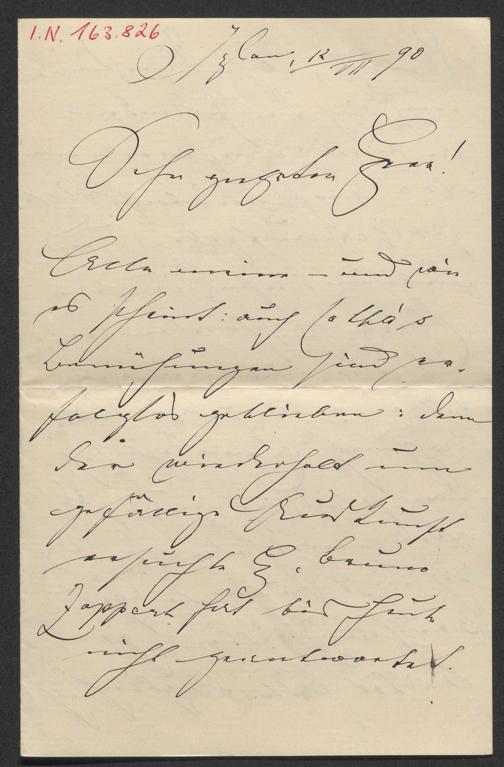 I.N. 163.826
Iglau, 12/VII 90
Sehr geehrter Herr!
Alle meine – und wie
es scheint: auch
Bemühungen sind er-
folglos geblieben: denn
der wiederholt um
gefällige Auskunft
ersuchte H. Bruno
Zappert hat bis heute
nicht geantwortet.